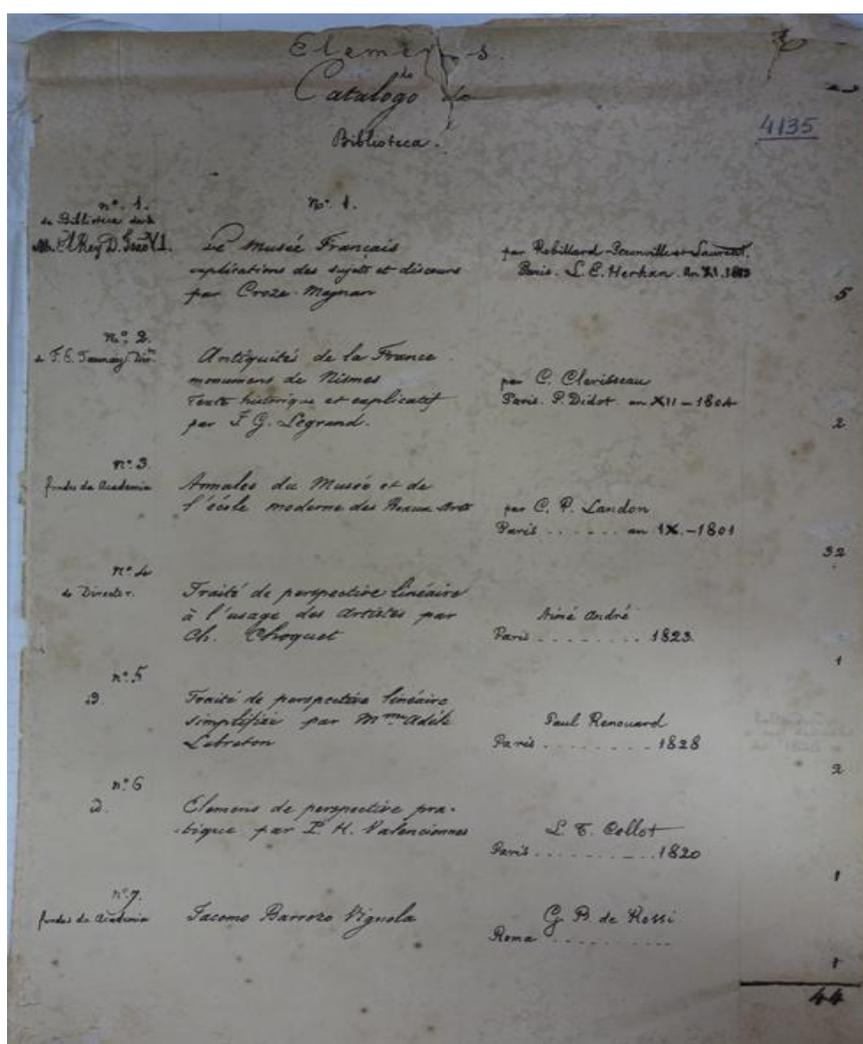 Elementos
do
Catalogo da
Bibliotheca.
4135
nº. 1.
da Bibliotheca de
S. M. El Rey D. João VI.
Nº. 1.
Le Musée Français
explications des sujets et discours
par Croze-Magnan
par Robillard-Peronville et Laurent.
Paris. L. E. Herhan. an XI. 1803
5
Nº. 2.
de F. E. Taunay Dir.
Antiquités de la France
monumens de Nismes
Texte historique et explicatif
par J. G. Legrand.
par C. Clerisseau
Paris. P. Didot. an XII-1804
2
nº. 3.
fundos da Academia
Annales du Musée et de
l'école moderne des Beaux Arts
par C. P. Landon
Paris . . . . . . an IX.-1801
32
nº 4
do Director.
Traité de perspective linéaire
à l'usage des Artistes par
Ch. Choquet
Aimé André
Paris . . . . . . . . 1823.
1
nº. 5
D.
Traité de perspective linéaire
simplifiée par Mme Adèle
Lebreton
Paul Renouard
Paris . . . . . . . . 1828
2
nº. 6
D.
Elemens de perspective pra-
tique par P. H. Valenciennes
L. T. Cellot
Paris . . . . . . . . 1820
1
nº. 7.
fundos da Academia
Jacomo Barrozo Vignola
G. B. de Rossi
Roma . . . . . . . . .
1
44